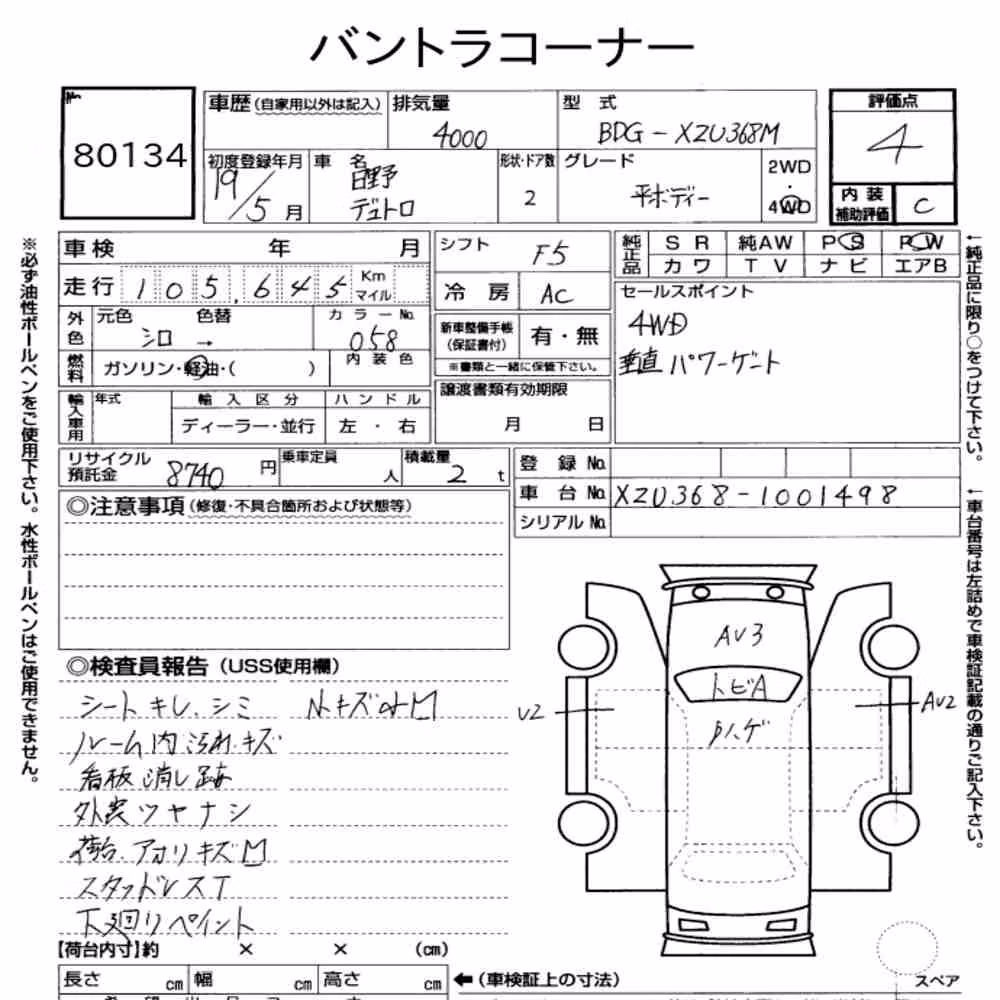 バントラコーナー
No.
80134
車歴(自家用以外は記入)
排気量
4000
型 式
BDG-XZU368M
評価点
4
初度登録年月
19/5月
車 名
日野
デュトロ
形状・ドア数
2
グレード
平ボディー
2WD
・
4WD
内 装
補助評価
C
車 検 年 月
シフト
F5
純正品
SR 純AW PS PW
カワ TV ナビ エアB
走行 105,645 Km
マイル
冷 房
AC
セールスポイント
4WD
垂直パワーゲート
外色
元色 色替
シロ →
カラーNo.
058
新車整備手帳
(保証書付)
有・無
※書類と一緒に保管下さい。
燃料
ガソリン・軽油・( )
内 装 色
譲渡書類有効期限
月 日
輸入車用
年式
輸 入 区 分
ディーラー・並行
ハ ン ド ル
左 ・ 右
リサイクル
預託金
8740円
乗車定員
人
積載量
2 t
登 録 No.
車 台 No. XZU368-1001498
シリアル No.
◎注意事項(修復・不具合箇所および状態等)
◎検査員報告(USS使用欄)
シートキレ、シミ
ルーム内汚れ・キズ
看板消し跡
外装ツヤナシ
荷台.アオリキズ凹
スタッドレスT
下廻りペイント
AU3
トビA
U2
AU2
ハゲ
【荷台内寸】約 × × (cm)
長さ cm 幅 cm 高さ cm
←(車検証上の寸法)
スペア
※必ず油性ボールペンをご使用下さい。水性ボールペンはご使用できません。
←純正品に限り○をつけて下さい。
←車台番号は左詰めで車検証記載の通りご記入下さい。